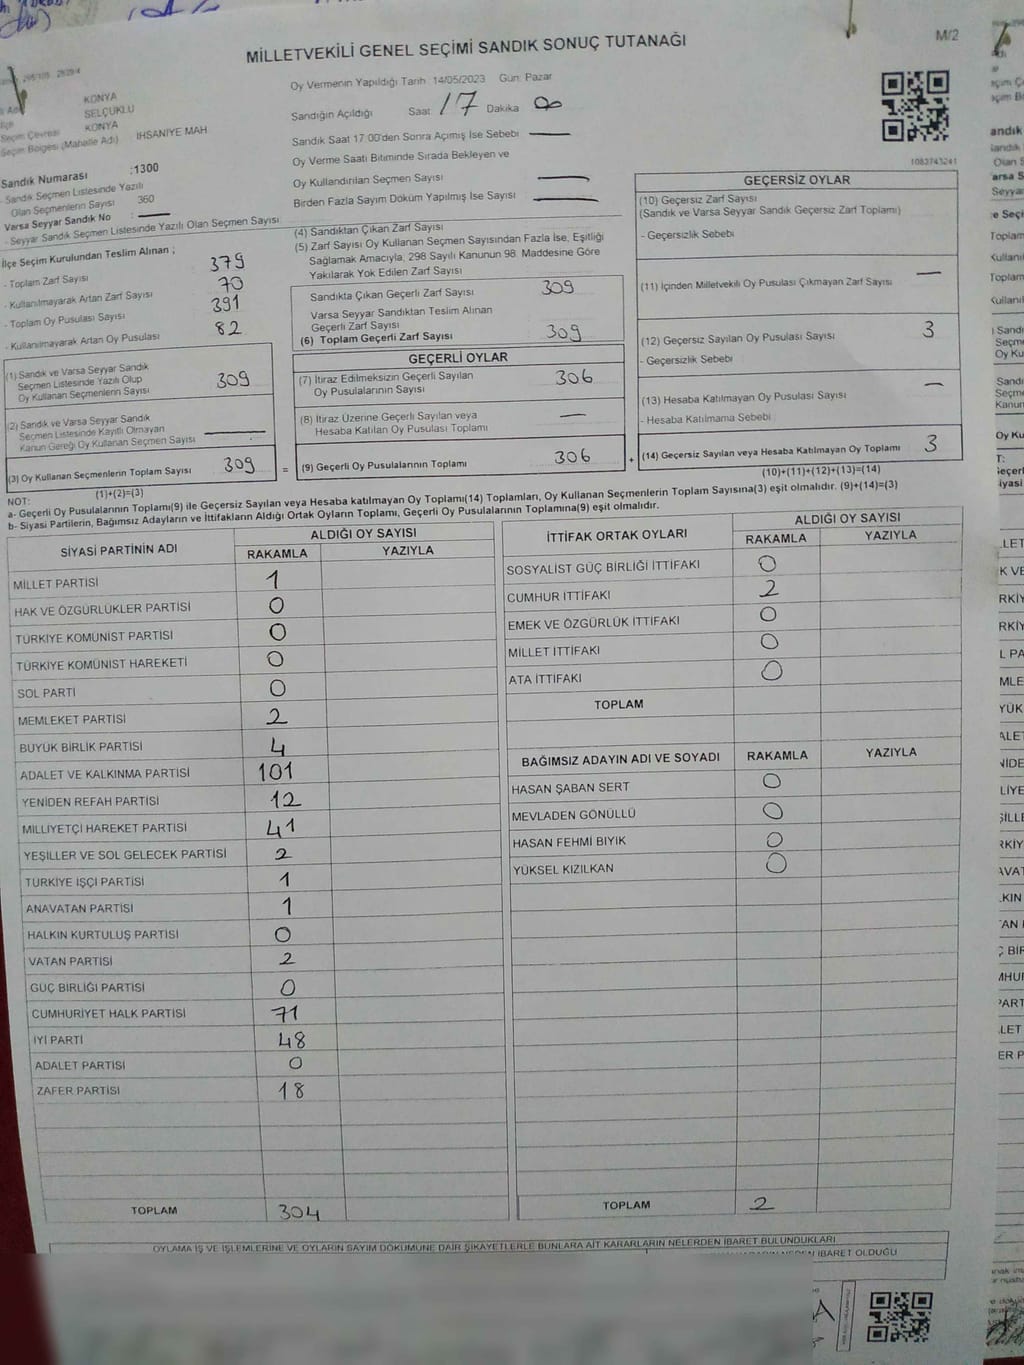 MİLLETVEKİLİ GENEL SEÇİMİ SANDIK SONUÇ TUTANAĞI
M/2
KONYA
SELÇUKLU
Seçim Çevresi KONYA
Seçim Bölgesi (Mahalle Adı) IHSANİYE MAH
Sandık Numarası :1300
- Sandık Seçmen Listesinde Yazılı
Olan Seçmenlerin Sayısı 360
Varsa Seyyar Sandık No : —
- Seyyar Sandık Seçmen Listesinde Yazılı Olan Seçmen Sayısı
Oy Vermenin Yapıldığı Tarih 14/05/2023 Gün: Pazar
Sandığın Açıldığı Saat 17 Dakika 00
Sandık Saat 17:00'den Sonra Açımış İse Sebebi —
Oy Verme Saati Bitiminde Sırada Bekleyen ve
Oy Kullandırılan Seçmen Sayısı —
Birden Fazla Sayım Döküm Yapılmış İse Sayısı —
1083743241
İlçe Seçim Kurulundan Teslim Alınan ;
- Toplam Zarf Sayısı 379
- Kullanılmayarak Artan Zarf Sayısı 70
- Toplam Oy Pusulası Sayısı 391
- Kullanılmayarak Artan Oy Pusulası 82
(1) Sandık ve Varsa Seyyar Sandık
Seçmen Listesinde Yazılı Olup
Oy Kullanan Seçmenlerin Sayısı 309
(2) Sandık ve Varsa Seyyar Sandık
Seçmen Listesinde Kayıtlı Olmayan
Kanun Gereği Oy Kullanan Seçmen Sayısı —
(3) Oy Kullanan Seçmenlerin Toplam Sayısı 309
(1)+(2)=(3)
(4) Sandıktan Çıkan Zarf Sayısı
(5) Zarf Sayısı Oy Kullanan Seçmen Sayısından Fazla İse, Eşitliği
Sağlamak Amacıyla, 298 Sayılı Kanunun 98. Maddesine Göre
Yakılarak Yok Edilen Zarf Sayısı
Sandıkta Çıkan Geçerli Zarf Sayısı 309
Varsa Seyyar Sandıktan Teslim Alınan
Geçerli Zarf Sayısı
(6) Toplam Geçerli Zarf Sayısı 309
GEÇERLİ OYLAR
(7) İtiraz Edilmeksizin Geçerli Sayılan
Oy Pusulalarının Sayısı 306
(8) İtiraz Üzerine Geçerli Sayılan veya
Hesaba Katılan Oy Pusulası Toplamı —
= (9) Geçerli Oy Pusulalarının Toplamı 306
GEÇERSİZ OYLAR
(10) Geçersiz Zarf Sayısı
(Sandık ve Varsa Seyyar Sandık Geçersiz Zarf Toplamı)
- Geçersizlik Sebebi
(11) İçinden Milletvekili Oy Pusulası Çıkmayan Zarf Sayısı —
(12) Geçersiz Sayılan Oy Pusulası Sayısı 3
- Geçersizlik Sebebi
(13) Hesaba Katılmayan Oy Pusulası Sayısı —
- Hesaba Katılmama Sebebi
+ (14) Geçersiz Sayılan veya Hesaba Katılmayan Oy Toplamı 3
(10)+(11)+(12)+(13)=(14)
NOT:
a- Geçerli Oy Pusulalarının Toplamı(9) ile Geçersiz Sayılan veya Hesaba katılmayan Oy Toplamı(14) Toplamları, Oy Kullanan Seçmenlerin Toplam Sayısına(3) eşit olmalıdır. (9)+(14)=(3)
b- Siyasi Partilerin, Bağımsız Adayların ve İttifakların Aldığı Ortak Oyların Toplamı, Geçerli Oy Pusulalarının Toplamına(9) eşit olmalıdır.
SİYASİ PARTİNİN ADI ALDIĞI OY SAYISI
RAKAMLA YAZIYLA
MİLLET PARTİSİ 1
HAK VE ÖZGÜRLÜKLER PARTİSİ 0
TÜRKİYE KOMÜNİST PARTİSİ 0
TÜRKİYE KOMÜNİST HAREKETİ 0
SOL PARTİ 0
MEMLEKET PARTİSİ 2
BÜYÜK BİRLİK PARTİSİ 4
ADALET VE KALKINMA PARTİSİ 101
YENİDEN REFAH PARTİSİ 12
MİLLİYETÇİ HAREKET PARTİSİ 41
YEŞİLLER VE SOL GELECEK PARTİSİ 2
TÜRKİYE İŞÇİ PARTİSİ 1
ANAVATAN PARTİSİ 1
HALKIN KURTULUŞ PARTİSİ 0
VATAN PARTİSİ 2
GÜÇ BİRLİĞİ PARTİSİ 0
CUMHURİYET HALK PARTİSİ 71
İYİ PARTİ 48
ADALET PARTİSİ 0
ZAFER PARTİSİ 18
TOPLAM 304
İTTİFAK ORTAK OYLARI ALDIĞI OY SAYISI
RAKAMLA YAZIYLA
SOSYALİST GÜÇ BİRLİĞİ İTTİFAKI 0
CUMHUR İTTİFAKI 2
EMEK VE ÖZGÜRLÜK İTTİFAKI 0
MİLLET İTTİFAKI 0
ATA İTTİFAKI 0
TOPLAM
BAĞIMSIZ ADAYIN ADI VE SOYADI RAKAMLA YAZIYLA
HASAN ŞABAN SERT 0
MEVLADEN GÖNÜLLÜ 0
HASAN FEHMİ BIYIK 0
YÜKSEL KIZILKAN 0
TOPLAM 2
OYLAMA İŞ VE İŞLEMLERİNE VE OYLARIN SAYIM DÖKÜMÜNE DAİR ŞİKAYETLERLE BUNLARA AİT KARARLARIN NELERDEN İBARET BULUNDUKLARI
İBARET OLDUĞU